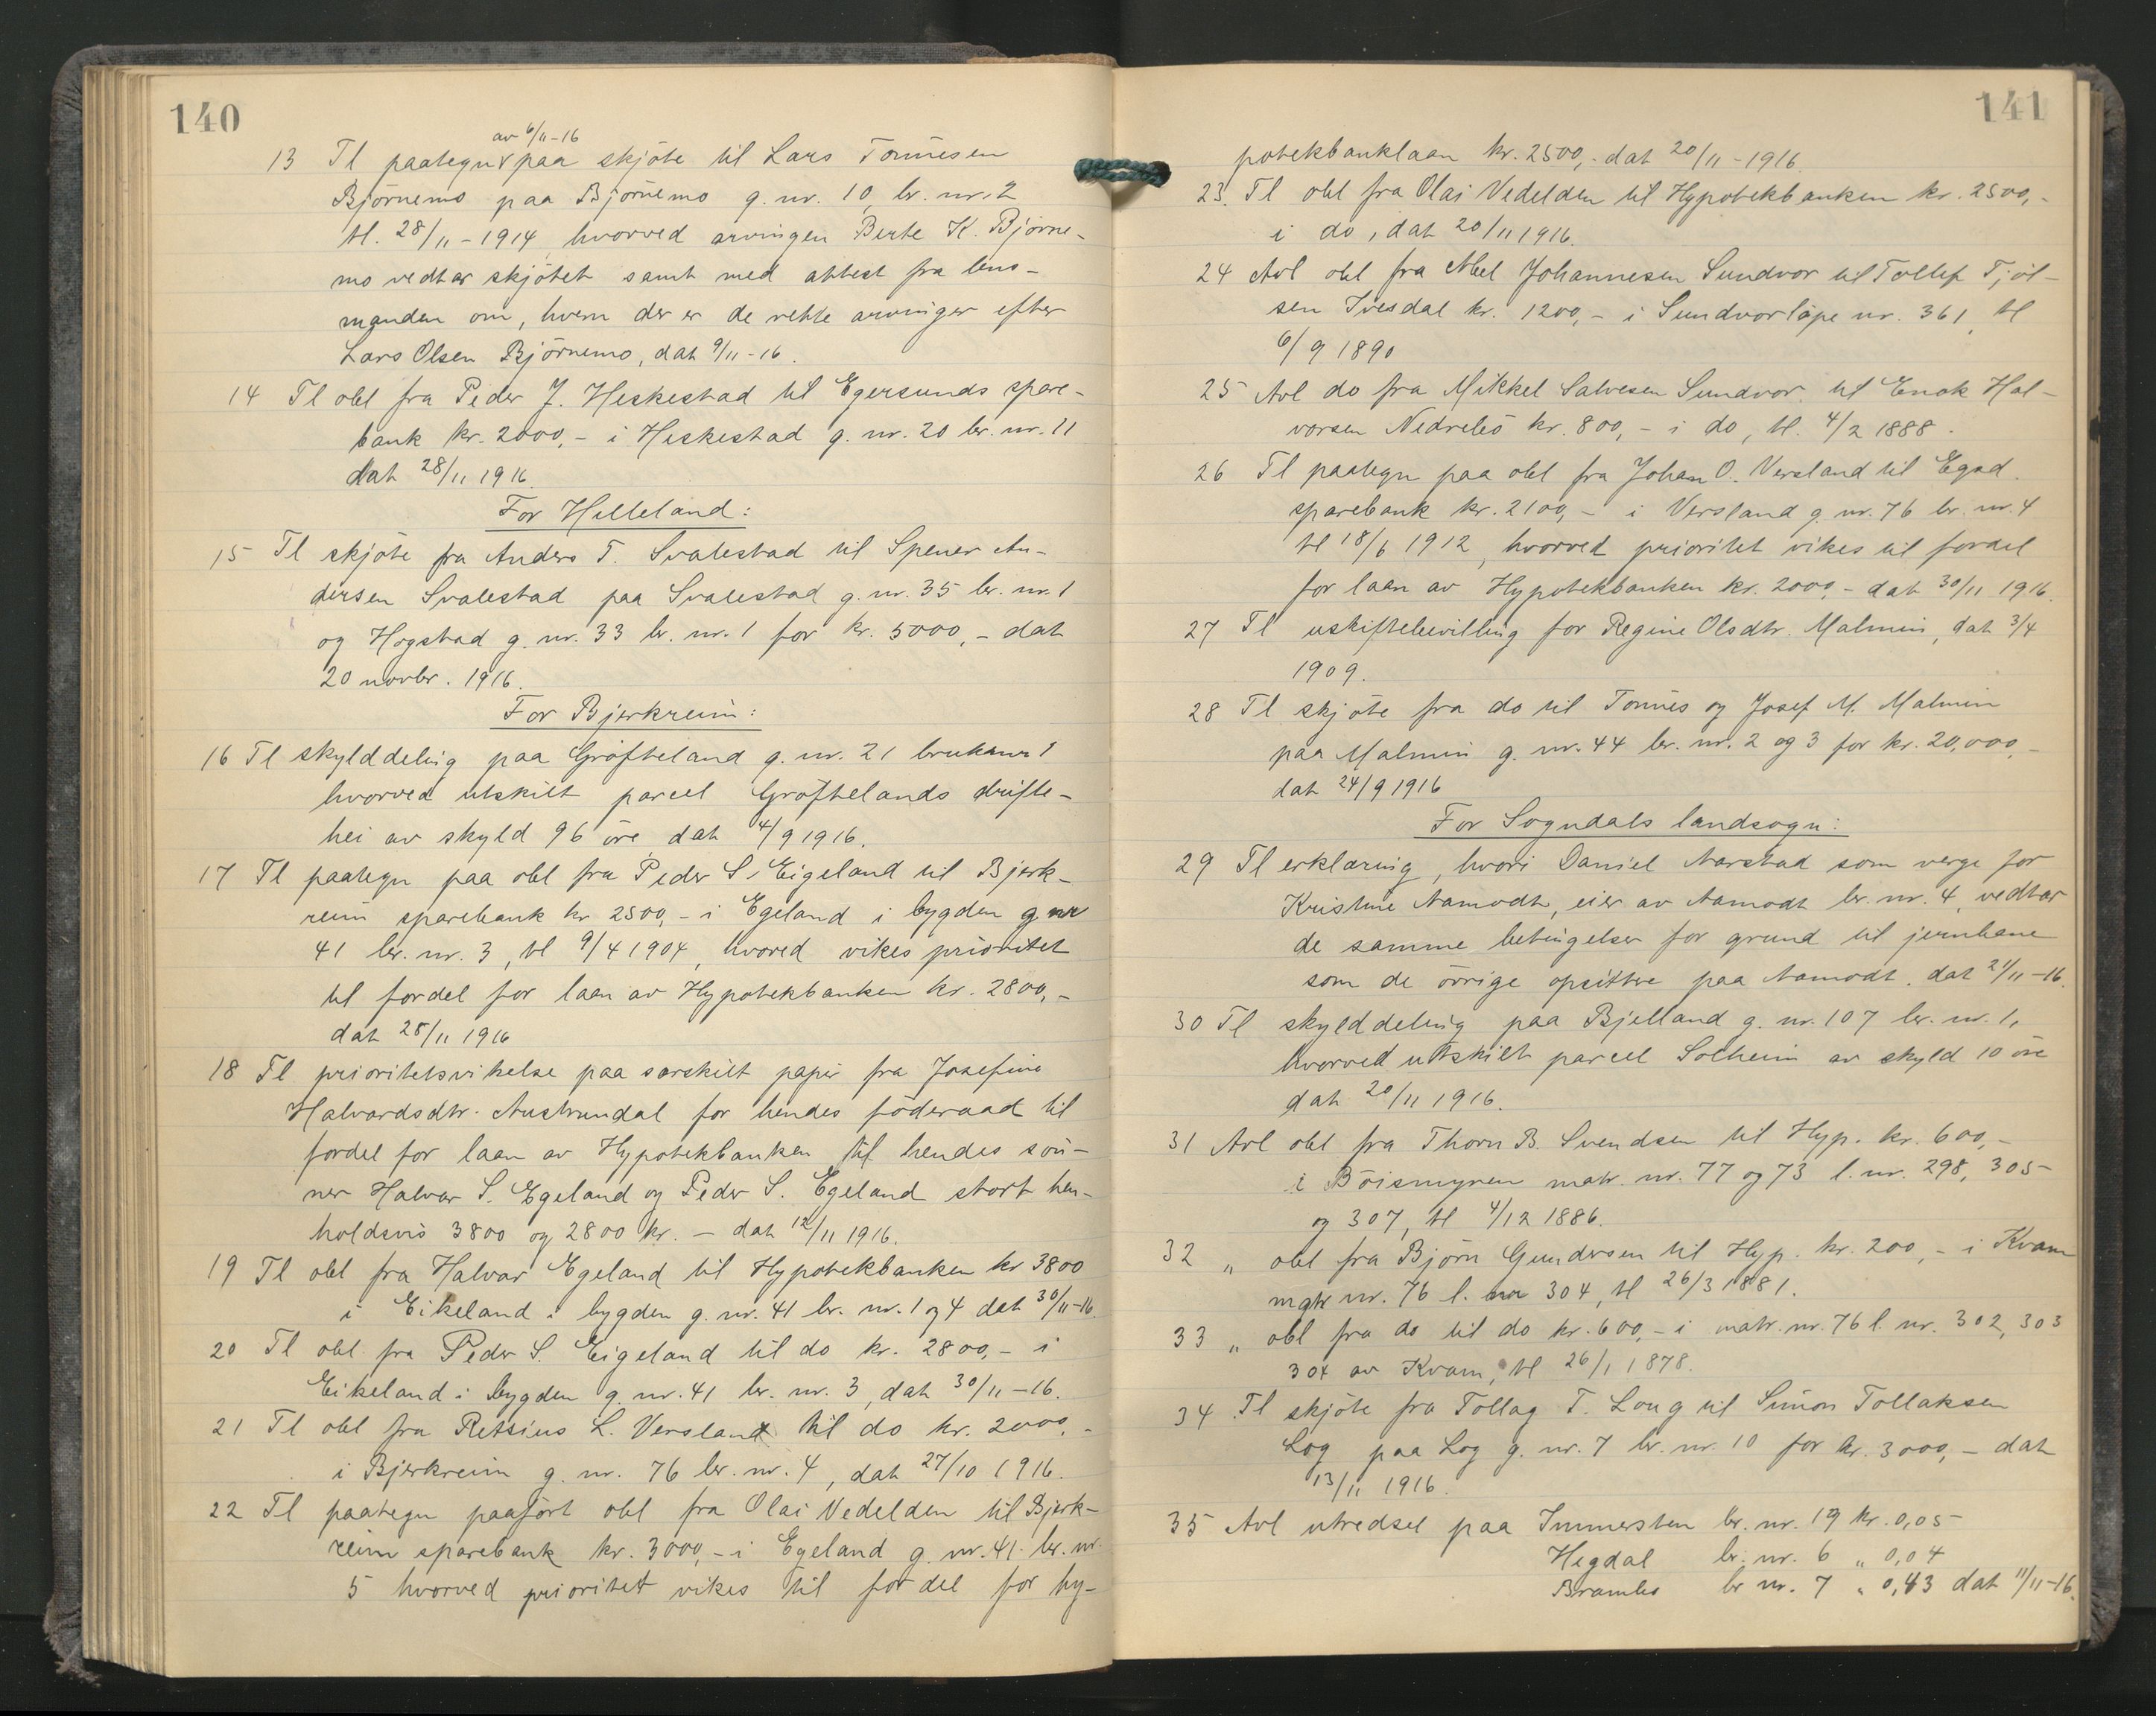 140
av 6/11-16
13 Tl paategn paa skjöte til Lars Tönnesen
Björnemo paa Björnemo g. nr. 10, br. nr. 2
tl. 28/11-1914, hvorved arvingen Berte K. Björne-
mo vedtar skjötet samt med attest fra lens-
manden om, hvem der er de rette arvinger efter
Lars Olsen Björnemo, dat 9/11-16.
14 Tl obl fra Peder J. Heskestad til Egersunds spare-
bank kr. 2000,- i Heskestad g. nr. 20 br. nr. 11
dat 28/11 1916.
For Helleland:
15 Tl skjöte fra Anders T. Svalestad til Spener An-
dersen Svalestad paa Svalestad g. nr. 35 br. nr. 1
og Hogstad g. nr. 33 br. nr. 1 for kr. 5000,- dat
20 novbr. 1916.
For Bjerkreim:
16 Tl skylddeling paa Gröfteland g. nr. 21 bruksnr 1
hvorved utskilt parcel Gröftelands drifte-
hei av skyld 96 öre dat 4/9 1916.
17 Tl paategn paa obl fra Peder S. Eigeland til Bjerk-
reim sparebank kr 2500,- i Egeland i bygden g nr
41 br. nr. 3, tl 9/4 1904, hvored vikes prioritet
til fordel for laan av Hypotekbanken kr. 2800,-
dat 28/11 1916
18 Tl prioritetsvikelse paa særskilt papir fra Josefine
Halvardsdtr. Austrumdal for hendes föderaad til
fordel for laan av Hypotekbanken til hendes sön-
ner Halvar S. Egeland og Peder S. Egeland stort hen-
holdsvis 3800 og 2800 kr. - dat 12/11 1916.
19 Tl obl fra Halvar Egeland til Hypotekbanken kr 3800
i Eikeland i bygden g. nr. 41 br. nr. 1 og 4 dat 30/11-16.
20 Tl obl fra Peder S. Eigeland til do kr. 2800,- i
Eikeland i bygden g. nr. 41 br. nr. 3, dat 30/11-16.
21 Tl obl fra Retsius L. Versland til do kr. 2000,-
i Bjerkreim g. nr. 76 br. nr. 4, dat 27/10 1916.
22 Tl paategn paafört obl fra Olai Vedelden til Bjerk-
reim sparebank kr. 3000,- i Egeland g. nr. 41 br. nr.
5 hvorved prioritet vikes til fordel for hy-
141
potekbanklaan kr. 2500,- dat 20/11-1916.
23. Tl obl fra Olai Vedelden til Hypotekbanken kr. 2500,-
i do, dat 20/11 1916.
24 Avl obl fra Abel Johannesen Sundvor til Tollef Tjöl-
sen Ivesdal kr. 1200,- i Sundvor löpe nr. 361, tl
6/9 1890
25 Avl do fra Mikkel Salvesen Sundvor til Enok Hal-
vorsen Nedrebö kr. 800,- i do, tl. 4/2 1888.
26 Tl paategn paa obl fra Johan O. Versland til Egsd.
sparebank kr. 2100,- i Versland g. nr. 76 br. nr. 4
tl 18/6 1912, hvorved prioritet vikes til fordel
for laan av Hypotekbanken kr. 2000,- dat 30/11 1916.
27 Tl uskiftebevilling for Regine Olsdtr. Malmin, dat 3/4
1909.
28 Tl skjöte fra do til Tönnes og Josef M. Malmin
paa Malmin g. nr. 44 br. nr. 2 og 3 for kr. 20,000,-
dat 24/9 1916
For Sogndals landsogn:
29 Tl erklæring, hvori Daniel Aarstad som verge for
Kristine Aamodt, eier av Aamodt br. nr. 4, vedtar
de samme betingelser for grund til jernbane
som de övrige opsittere paa Aamodt. dat 21/11-16.
30 Tl skylddeling paa Bjelland g. nr. 107 br. nr. 1,
hvorved utskilt parcel Solheim av skyld 10 öre
dat 20/11 1916.
31 Avl obl fra Thorn B. Svendsen til Hyp. kr. 600,-
i Böismyren matr. nr. 77 og 73 l. nr. 298, 305
og 307, tl 4/12 1886.
32 " obl fra Björn Gundersen til Hyp. kr. 200,- i Kvam
matr nr. 76 l. nr 304, tl 26/3 1881.
33 " obl fra do til do kr. 600,- i matr. nr. 76 l. nr. 302, 303
304 av Kvam, tl 26/1 1878.
34 Tl skjöte fra Tollag T. Loug til Simon Tollaksen
Log paa Log g. nr. 7 br. nr. 10 for kr. 3000,- dat
13/11 1916.
35 Avl utredsel paa Immersten br. nr. 19 kr. 0,05
Hegdal br. nr. 6 " 0,04
br nr. 7 " 0,43 dat 11/11-16.